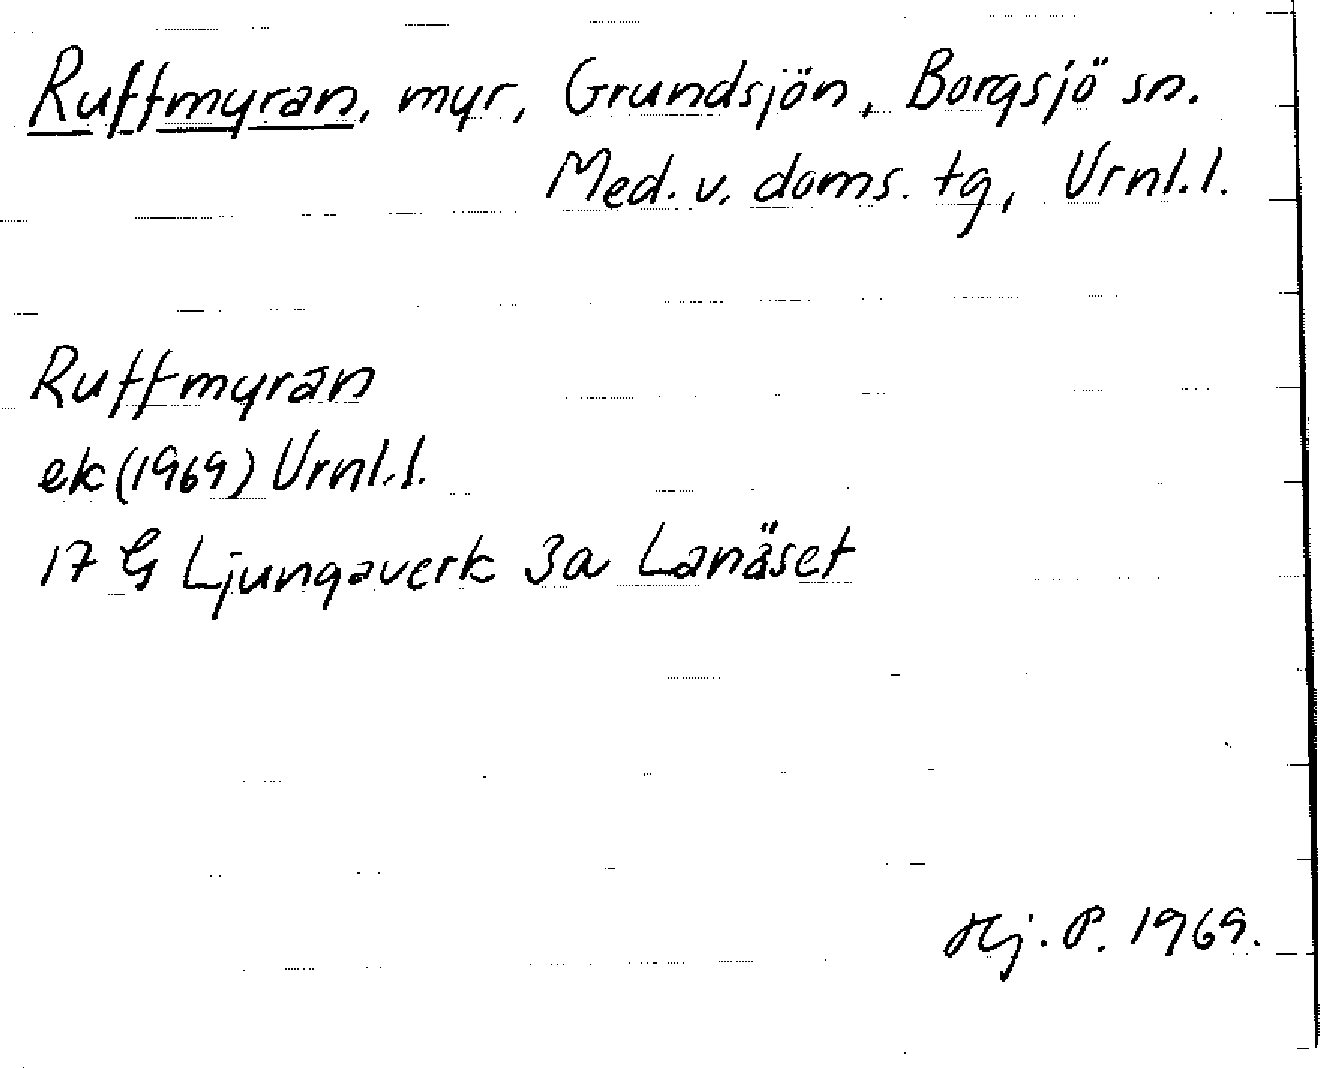 Ruffmyran, myr, Grundsjön, Borgsjö sn.
Med. v. doms. tg, Vrnl.l.
Ruffmyran
ek (1969) Vrnl.l.
17 G Ljungaverk 3a Lanäset
Hj. P. 1969.